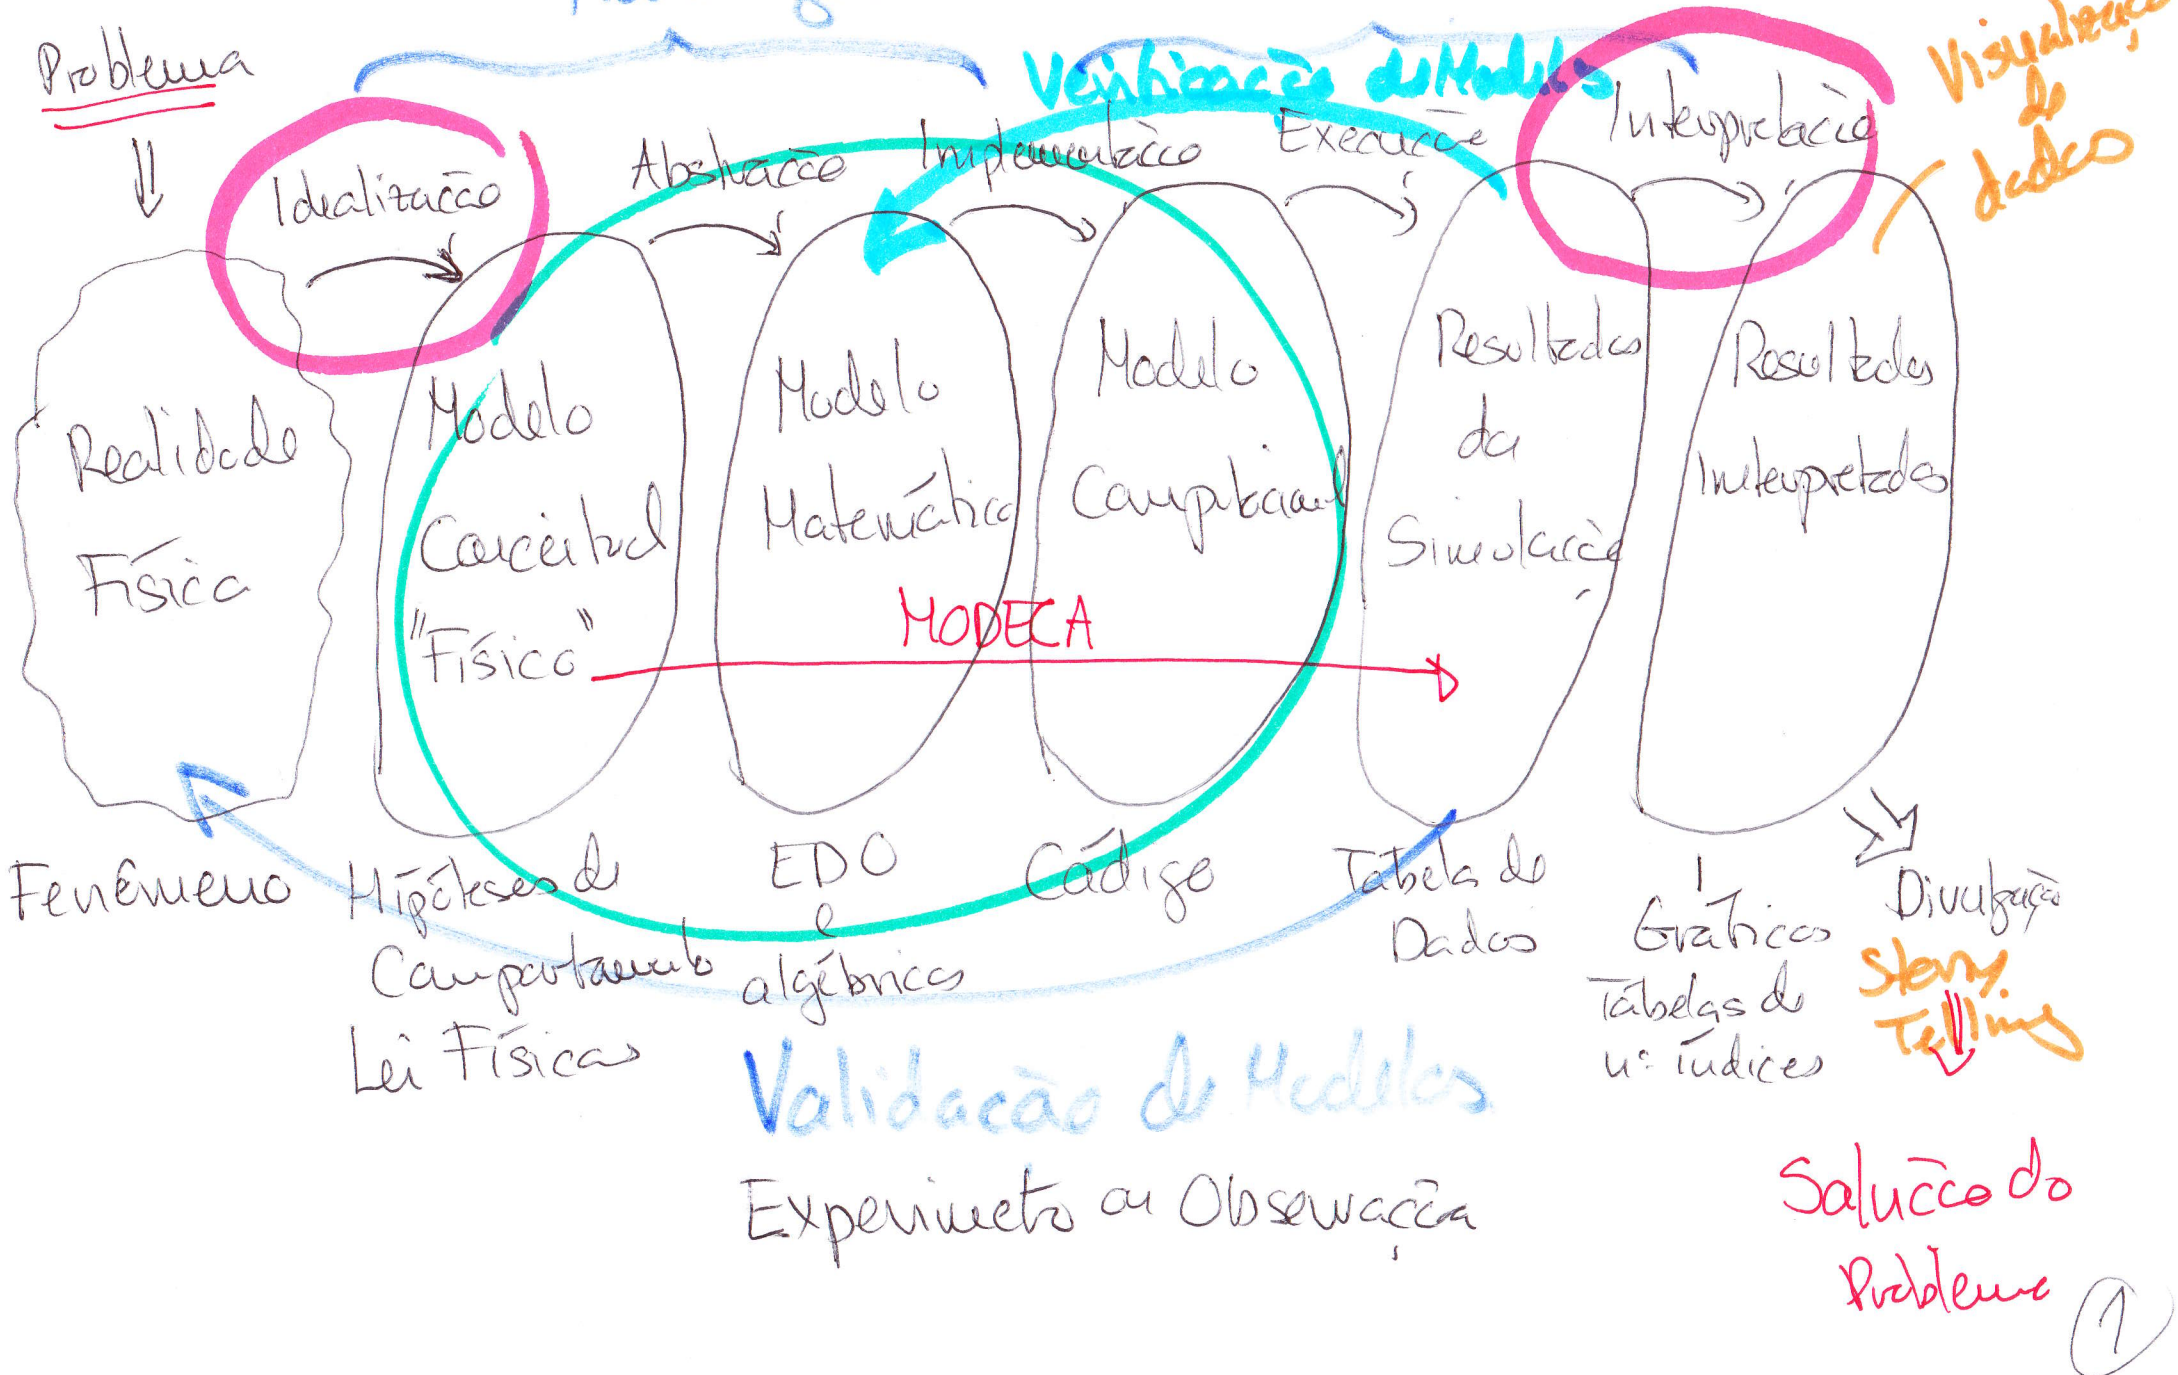 Problema
Verificação de Modelos
Visualização
de
dados
Idealização
Abstração
Implementação
Execução
Interpretação
Realidade
Física
Modelo
Conceitual
"Físico"
Modelo
Matemático
Modelo
Computacional
Resultados
da
Simulação
Resultados
Interpretados
MODECA
Fenômeno
Hipóteses de
Comportamento
Lei Físicas
EDO
e
algébricas
Código
Tabela de
Dados
Gráficos
Tabelas de
nº índices
Divulgação
Story
Telling
Validação de Modelos
Experimeto ou Observação
Solução do
Problema
1